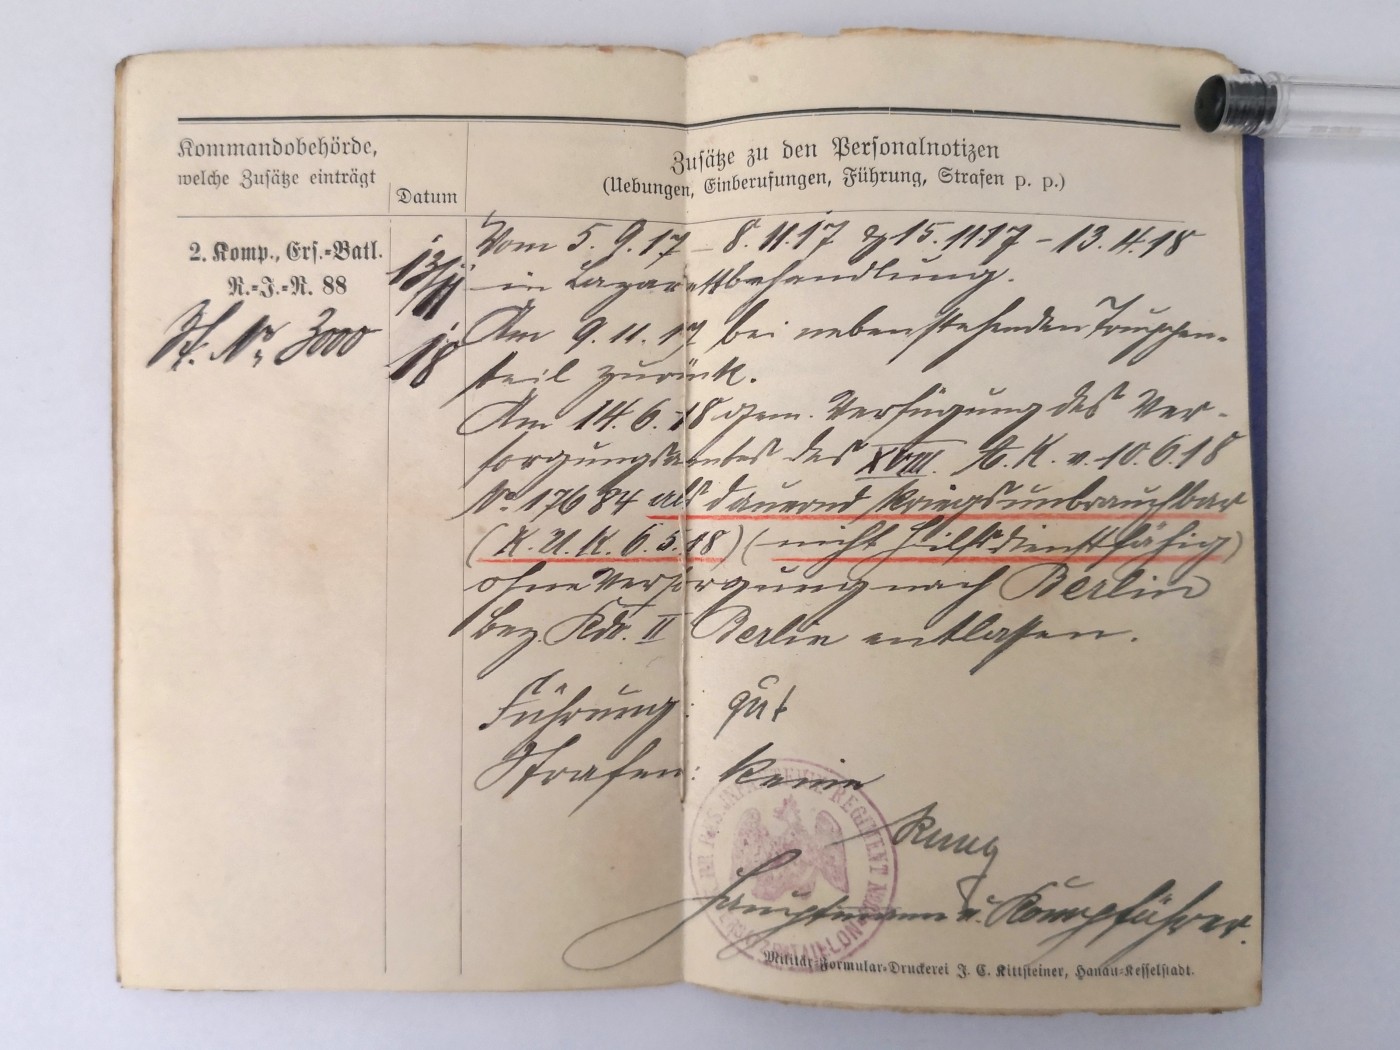 Kommandobehörde,
welche Zusätze einträgt
Datum
Zusätze zu den Personalnotizen
(Uebungen, Einberufungen, Führung, Strafen p. p.)
2. Komp., Ers.=Batl.
R.=I.=R. 88
Nr. 3000
13/11
18
Vom 5.9.17 – 8.11.17 & 15.11.17 – 13.4.18
in Lazarettbehandlung.
Am 9.11.17 bei nebenstehenden Truppen-
teil zurück.
Am 14.6.18 gem. Verfügung des Ver-
sorgungsamtes des XVIII. A.K. v. 10.6.18
No 17684 als dauernd kriegsunbrauchbar
(K.U.K. 6.5.18) (nicht hilfsdienstfähig)
ohne Versorgung nach Berlin
Bez. Kdo. II Berlin entlassen.
Führung: gut
Strafen: keine
Hauptmann u. Kompführer.
INFANTERIE REGIMENT
ERSATZ BATAILLON
Militär=Formular=Druckerei J. C. Kittsteiner, Hanau=Kesselstadt.